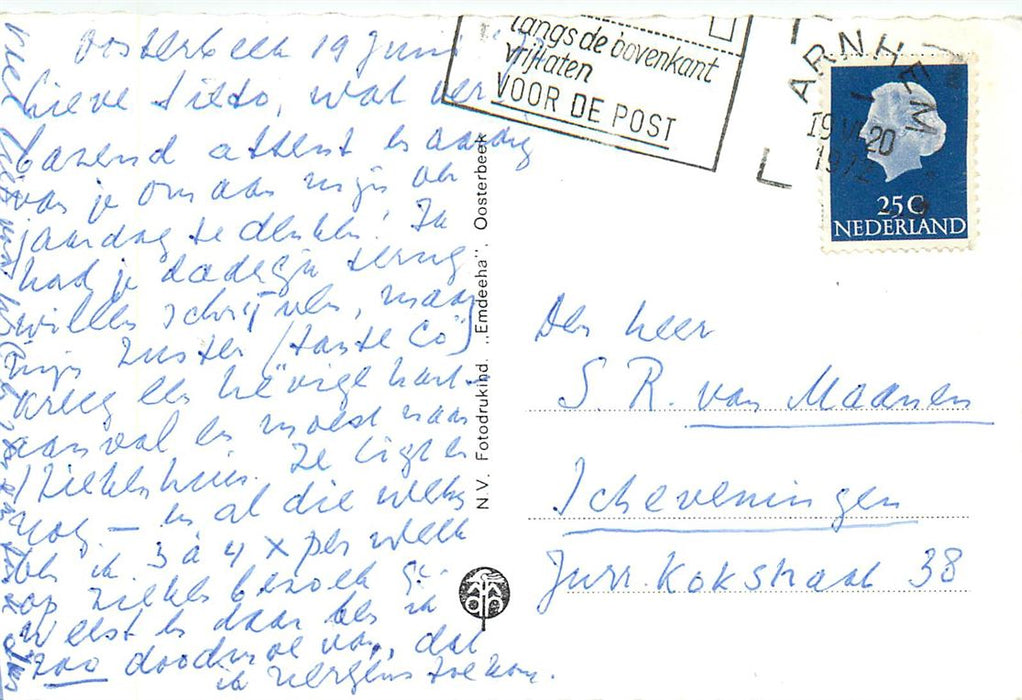 Oosterbeek 19 Juni
Lieve Sietso, wat ver
bazend attent en aardig
van je om aan mijn ver
jaardag te denken! Ik
had je dadelijk terug
willen schrijven, maar
mijn zuster (tante Co)
kreeg een hevige hart-
aanval en moest naar
't ziekenhuis. Ze ligt er
nog – en al die weken
ben ik 3 à 4 x per week
op ziekenbezoek ge-
weest en daar ben ik
zoo doodmoe van, dat
ik nergens toe kom.
N.V. Fotodrukind. „Emdeeha", Oosterbeek
langs de bovenkant
vrijlaten
VOOR DE POST
ARNHEM
19 VI 20
1972
25 C
NEDERLAND
Den heer
S. R. van Maanen
Scheveningen
Jurr. Kokstraat 38